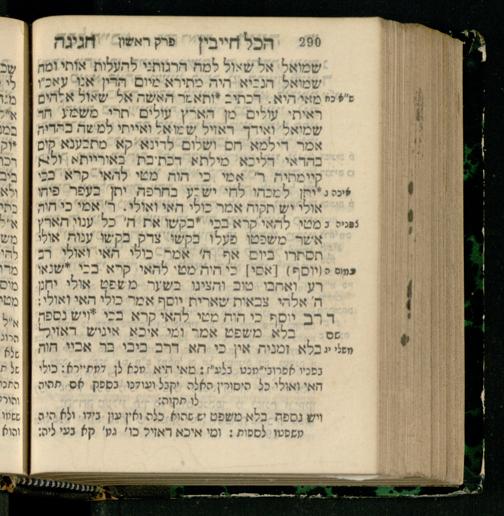 290 הכל חייבין פרק ראשון חגיגה
שמואל אל שאול למה הרגזתני להעלות אותי ומה
שמואל הנביא היה מתירא מיום הדין אנו עאכ"ו
מאי היא. דכתיב *ותאמר האשה אל שאול אלהים
ראיתי עולים מן הארץ עולים תרי משמע חד
שמואל ואידך דאזיל שמואל ואייתי למשה בהדיה
אמר דילמא חס ושלום לדינא קא מתבענא קום
בהדאי דליכא מילתא דכתיבת באורייתא ולא
קיימתיה ר' אמי כי הוה מטי להאי קרא בכי
איכה ג *יתן למכהו לחי ישבע בחרפה יתן בעפר פיהו
אולי יש תקוה אמר כולי האי ואולי. ר' אמי כי הוה
צפניה ב מטי להאי קרא בכי *בקשו את ה' כל ענוי הארץ
אשר משפטו פעלו בקשו צדק בקשו ענוה אולי
תסתרו ביום אף ה' אמר כולי האי ואולי רב
עמוס ה (יוסף) [אסי] כי הוה מטי להאי קרא בכי *שנאו
רע ואהבו טוב והציגו בשער משפט אולי יחנן
ה' אלהי צבאות שארית יוסף אמר כולי האי ואולי:
רב יוסף כי הוה מטי להאי קרא בכי *ויש נספה
בלא משפט אמר ומי איכא איניש דאזיל
משלי יג בלא זמניה אין כי הא דרב ביבי בר אביי הוה
מאי היא מנא לן דמתיירא: כולי
האי ואולי כל היסורין האלה יקבל ועודנו בספק אם תהיה
לו תקוה:
ויש נספה בלא משפט יש שהוא כלה ואין עון בידו ולא היה
משפטו לספות: ומי איכא דאזיל כו' גמ' קא בעי ליה: